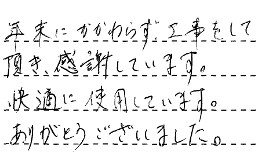 年末にかかわらず、工事をして
頂き、感謝しています。
快適に使用しています。
ありがとうございました。